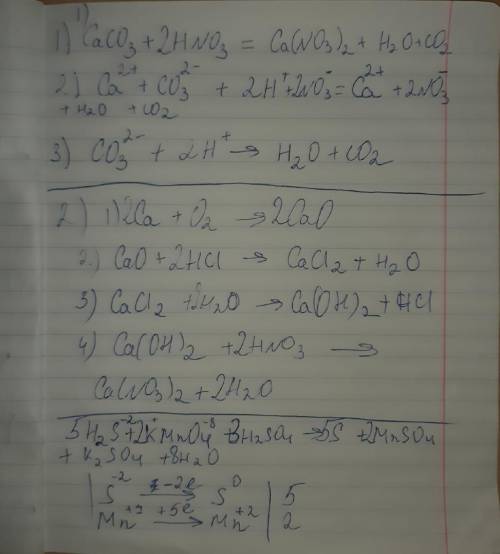 1)
1) CaCO₃ + 2HNO₃ = Ca(NO₃)₂ + H₂O + CO₂
2) Ca²⁺ + CO₃²⁻ + 2H⁺ + 2NO₃⁻ = Ca²⁺ + 2NO₃⁻
+ H₂O + CO₂
3) CO₃²⁻ + 2H⁺ → H₂O + CO₂
2) 1) 2Ca + O₂ → 2CaO
2.) CaO + 2HCl → CaCl₂ + H₂O
3) CaCl₂ + 2H₂O → Ca(OH)₂ + HCl
4) Ca(OH)₂ + 2HNO₃ →
Ca(NO₃)₂ + 2H₂O
5H₂S⁻² + 2KMnO₄⁻⁸ 3H₂SO₄ → 5S + 2MnSO₄
+ K₂SO₄ + 8H₂O
S⁻² -2e → S⁰ | 5
Mn⁺⁷ +5e → Mn⁺² | 2